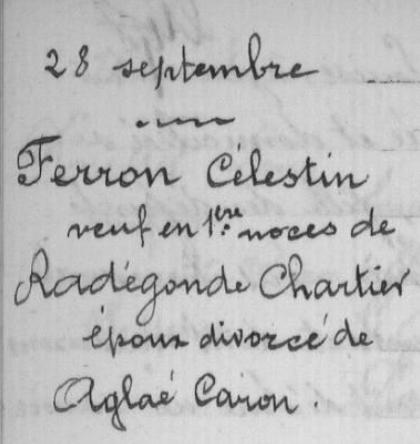 28 septembre
Ferron Célestin
veuf en 1ère noces de
Radégonde Chartier
époux divorcé de
Aglaé Caron.